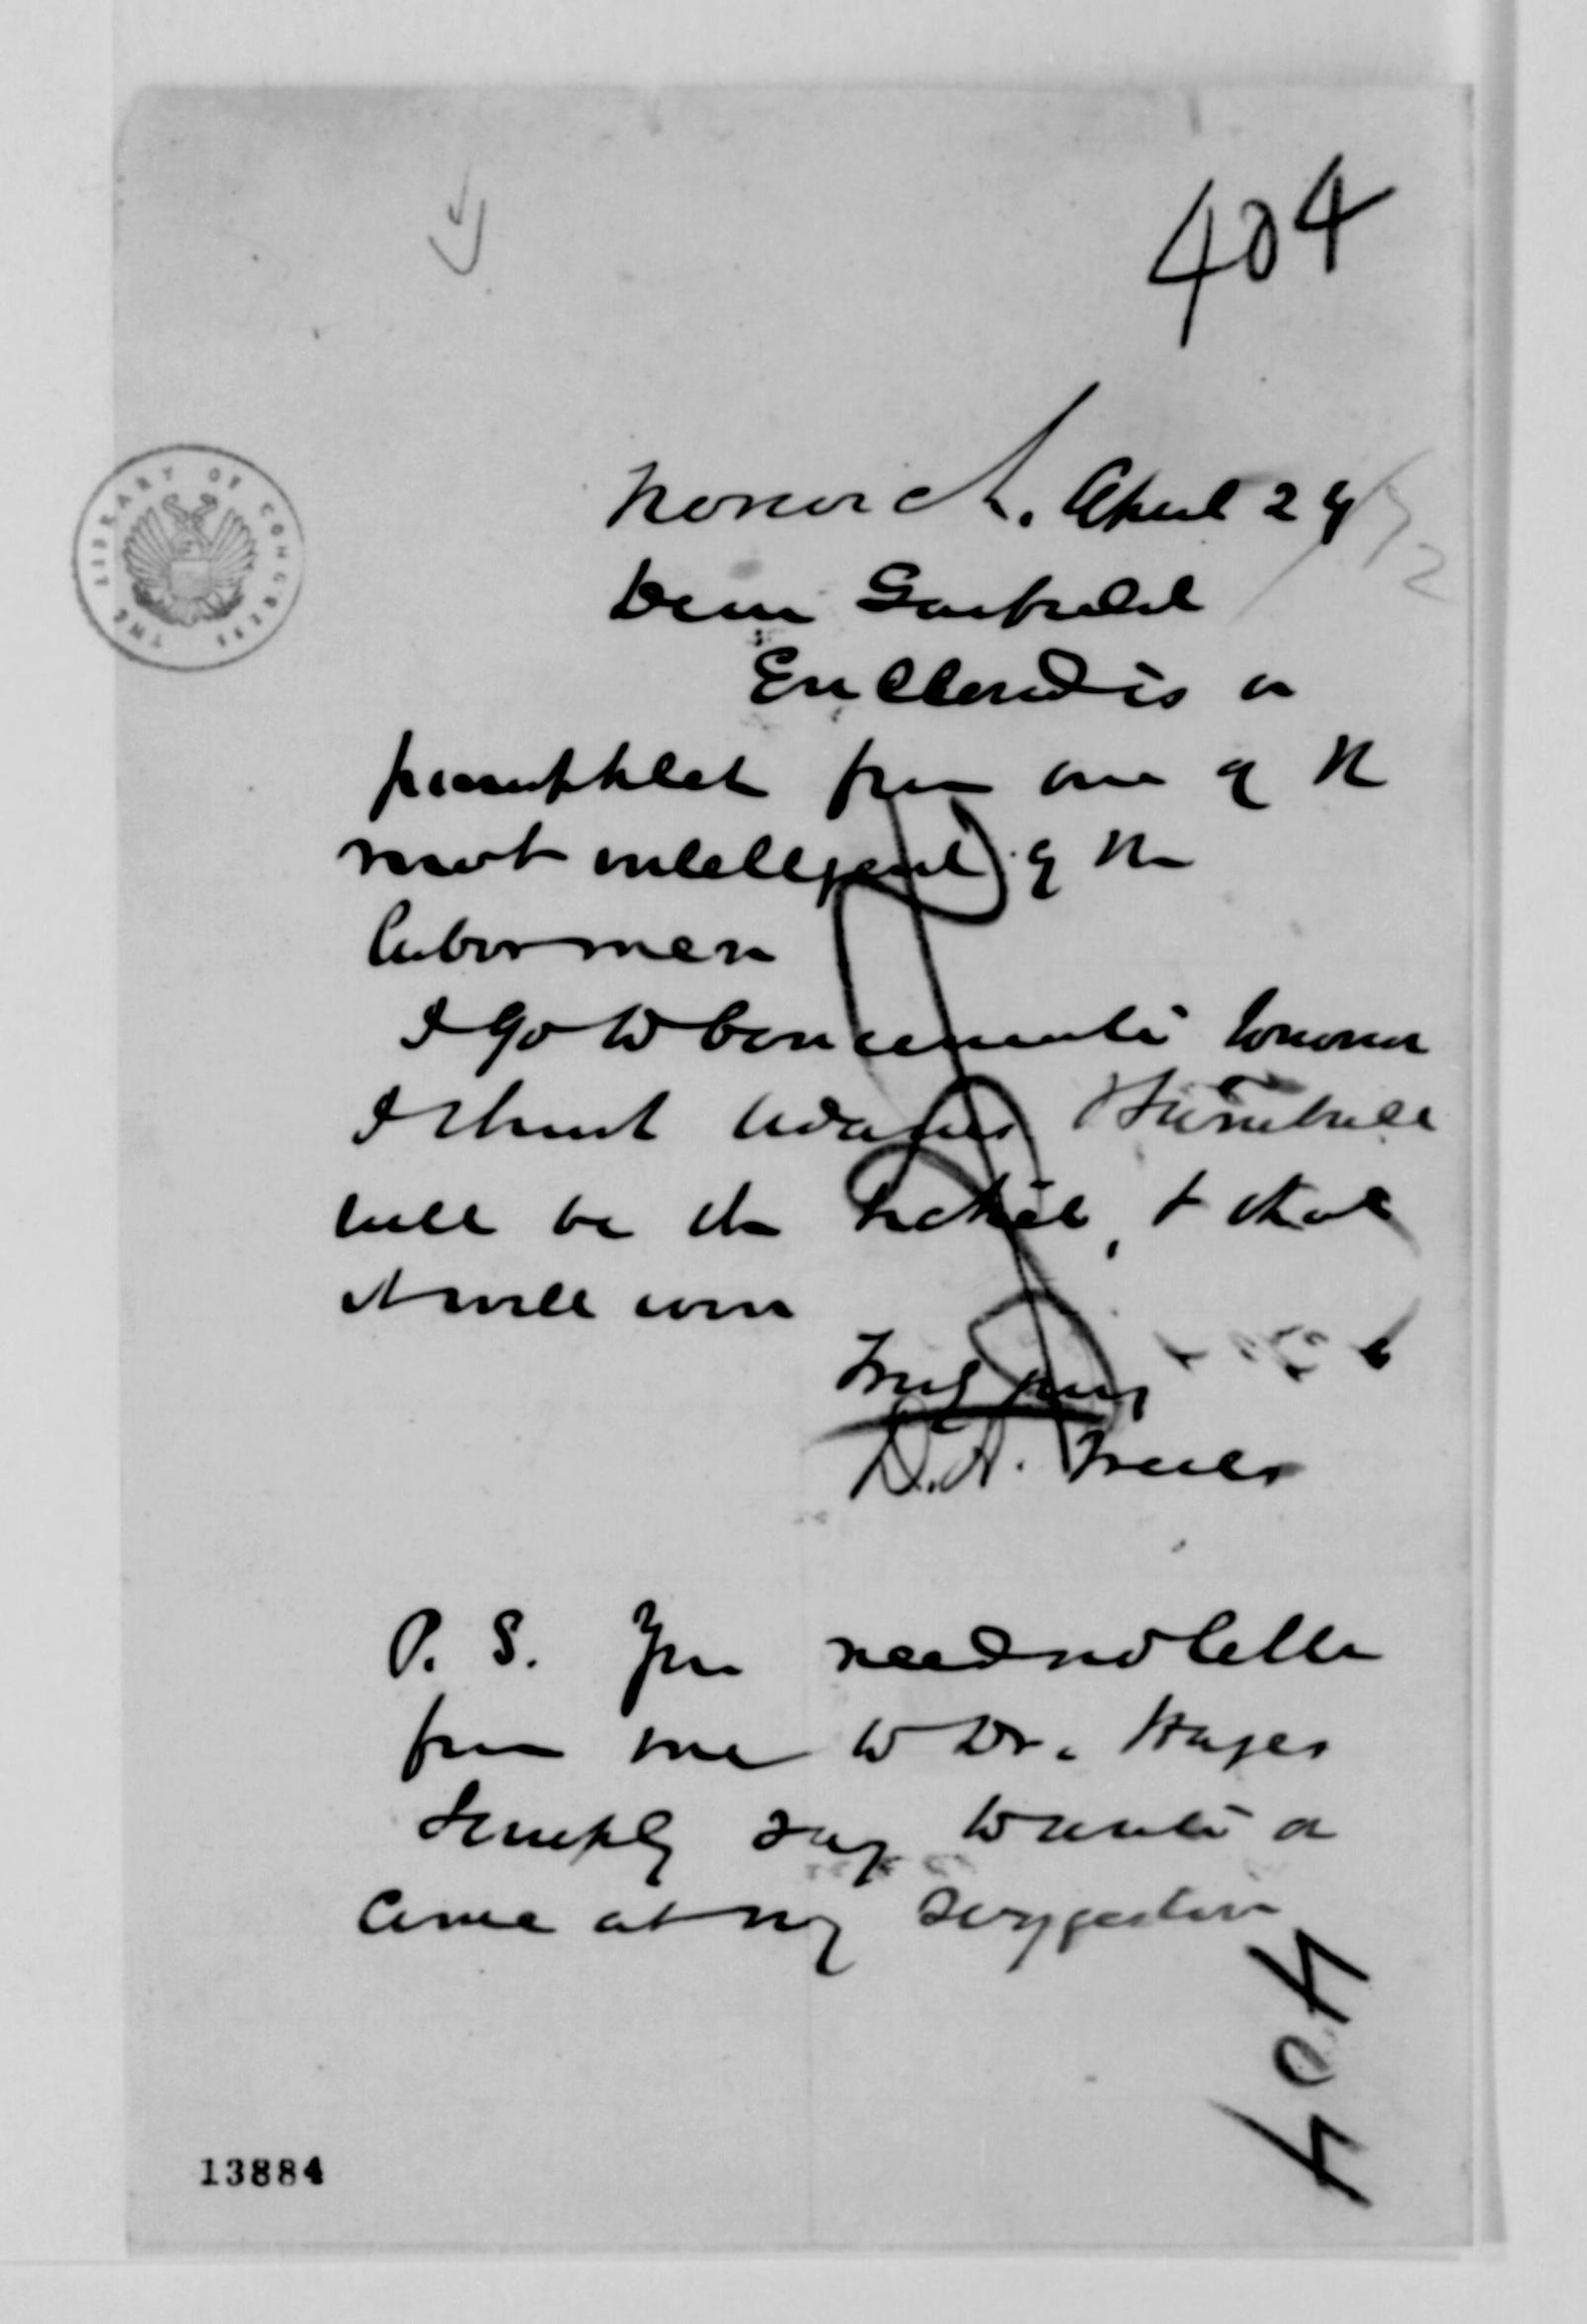 404
THE LIBRARY OF CONGRESS
Norwich. April 29/72
Dear Garfield
Enclosed is a
pamphlet from one of the
most intelligent of the
labor men
I go to Concinnati tomorrow
I think Adams & Trumbull
will be the ticket, & that
it will win
Truly yours
D. A. Wells
P. S. You need no letter
from me to Dr. Hayes
Simply say
came at my suggestion
404
13884